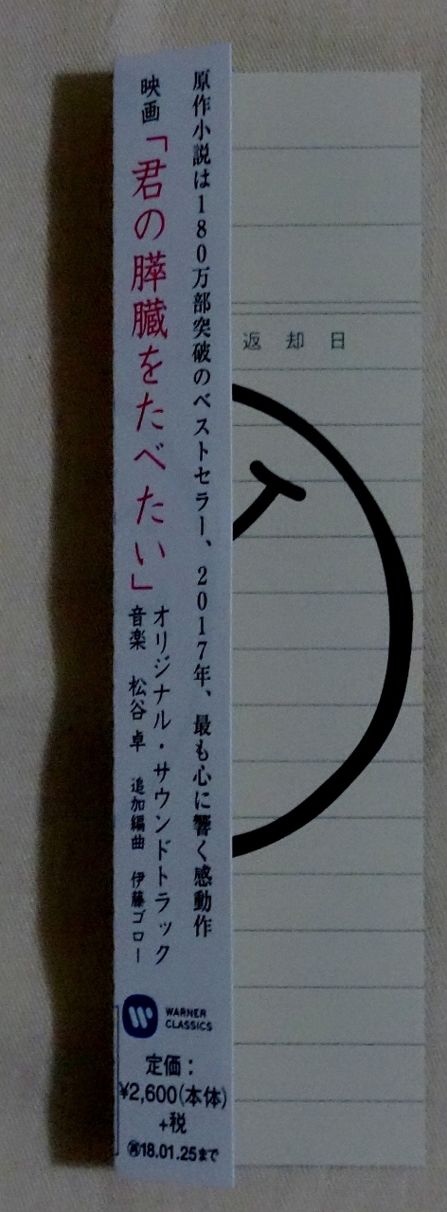 原作小説は180万部突破のベストセラー、2017年、最も心に響く感動作
映画「君の膵臓をたべたい」
オリジナル・サウンドトラック
音楽 松谷 卓 追加編曲 伊藤ゴロー
WARNER
CLASSICS
定価：
¥2,600(本体)
+税
18.01.25まで
返却日